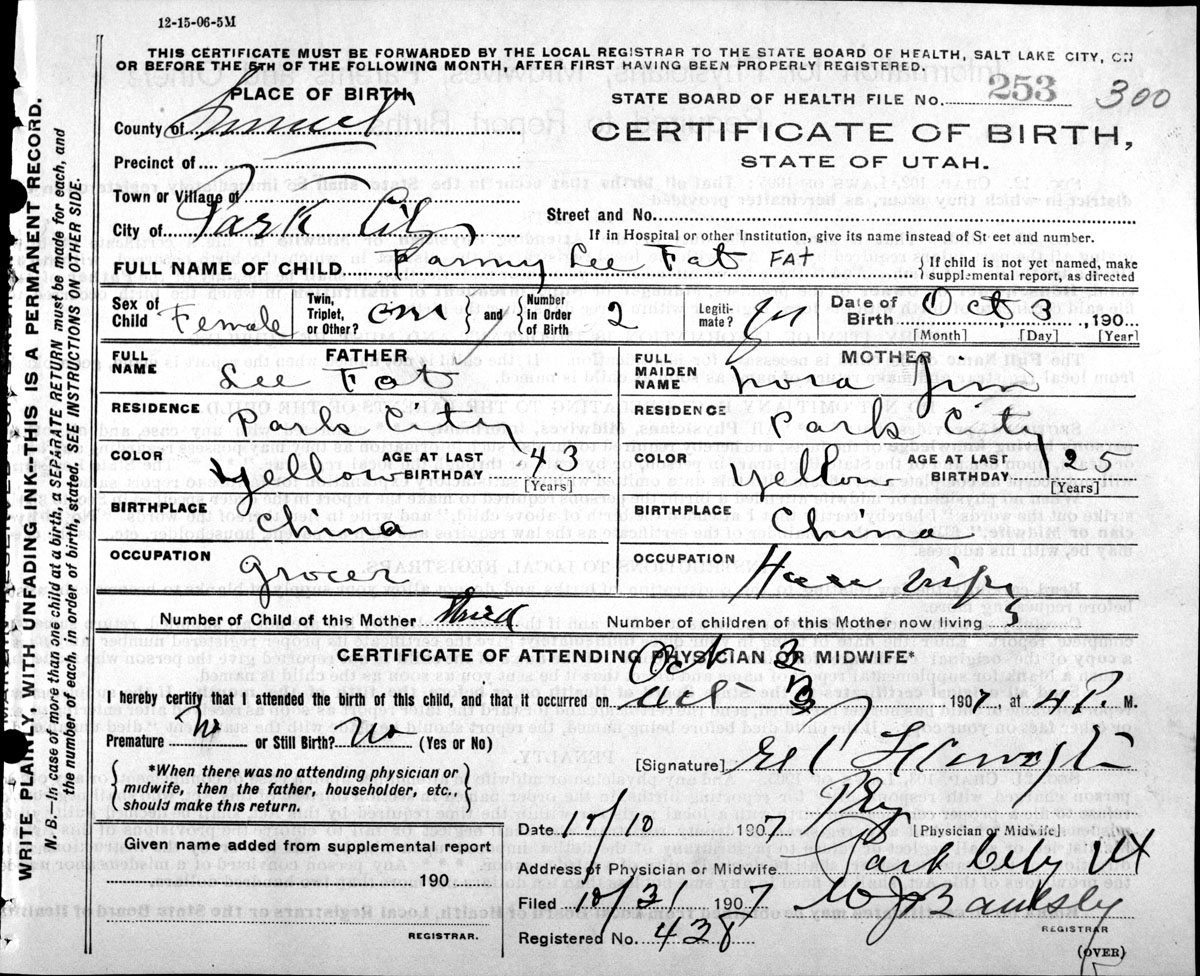 12-15-06-5M
THIS CERTIFICATE MUST BE FORWARDED BY THE LOCAL REGISTRAR TO THE STATE BOARD OF HEALTH, SALT LAKE CITY, ON
OR BEFORE THE 5TH OF THE FOLLOWING MONTH, AFTER FIRST HAVING BEEN PROPERLY REGISTERED.
PLACE OF BIRTH
STATE BOARD OF HEALTH FILE No. 253 300
County of
CERTIFICATE OF BIRTH,
STATE OF UTAH.
Precinct of
Town or Village of
Street and No.
City of Park City
If in Hospital or other Institution, give its name instead of St eet and number.
FULL NAME OF CHILD Lee Fat FAT
{ If child is not yet named, make supplemental report, as directed
Sex of Child Female
Twin, Triplet, or Other?
} and {
Number in Order of Birth 2
Legiti-mate?
Date of Birth Oct 3, 190
[Month] [Day] [Year]
FATHER
FULL NAME Lee Fat
RESIDENCE Park City
COLOR Yellow
AGE AT LAST BIRTHDAY 43
[Years]
BIRTHPLACE China
OCCUPATION Grocer
MOTHER
FULL MAIDEN NAME
RESIDENCE Park City
COLOR Yellow
AGE AT LAST BIRTHDAY 25
[Years]
BIRTHPLACE China
OCCUPATION House wife
Number of Child of this Mother
Number of children of this Mother now living 3
CERTIFICATE OF ATTENDING PHYSICIAN OR MIDWIFE*
Oct 3
I hereby certify that I attended the birth of this child, and that it occurred on Oct 3 1907, at 4 P. M.
Premature No or Still Birth? No (Yes or No)
*When there was no attending physician or
midwife, then the father, householder, etc.,
should make this return.
[Signature]
Phy
Date 10/10 1907
[Physician or Midwife]
Given name added from supplemental report
190
REGISTRAR.
Address of Physician or Midwife. Park City Ut
Filed 10/31 1907
REGISTRAR
Registered No. 438
(OVER)
WRITE PLAINLY, WITH UNFADING INK—THIS IS A PERMANENT RECORD.
N. B.—In case of more than one child at a birth, a SEPARATE RETURN must be made for each, and
the number of each, in order of birth, stated. (SEE INSTRUCTIONS ON OTHER SIDE.